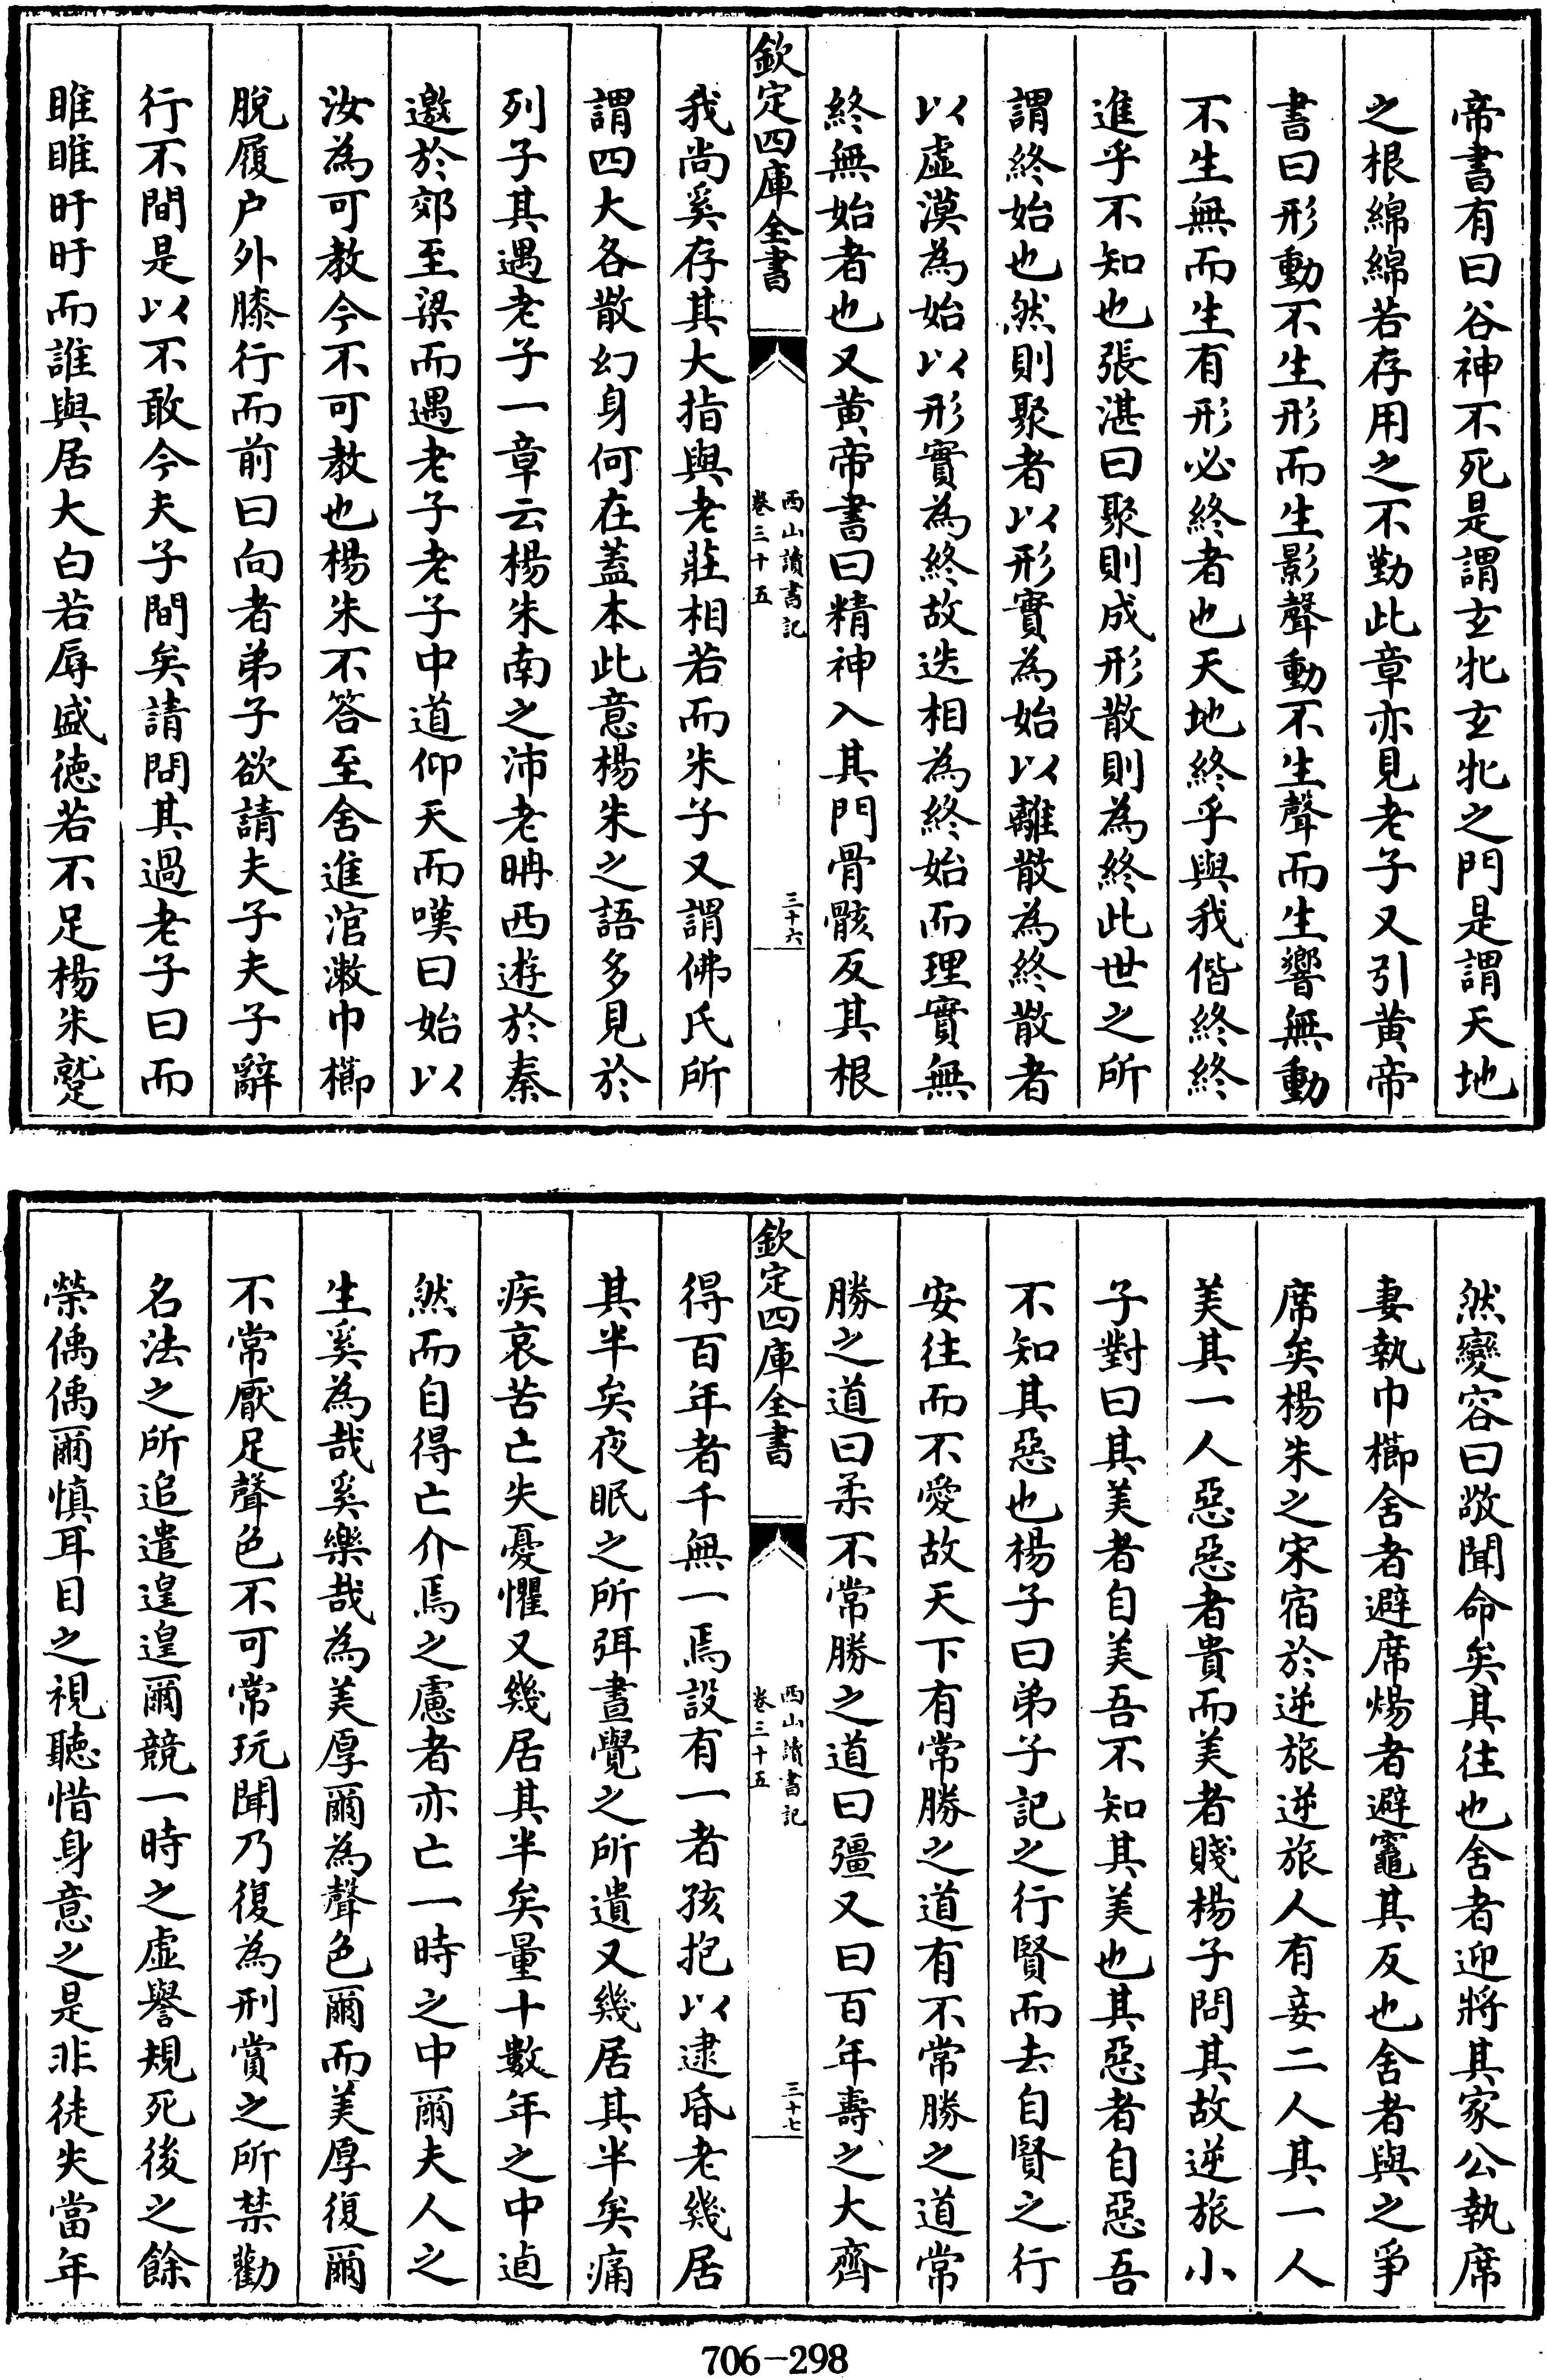 帝書有曰谷神不死是謂玄牝玄牝之門是謂天地
之根綿綿若存用之不勤此章亦見老子又引黄帝
書曰形動不生形而生影聲動不生聲而生響無動
不生無而生有形必終者也天地終乎與我偕終終
進乎不知也張湛曰聚則成形散則為終此世之所
謂終始也然則聚者以形實為始以離散為終散者
以虛漠為始以形實為終故迭相為終始而理實無
終無始者也又黄帝書曰精神入其門骨骸反其根
欽定四庫全書
西山讀書記
卷三十五
三十六
我尚奚存其大指與老莊相若而朱子又謂佛氏所
謂四大各散幻身何在蓋本此意楊朱之語多見於
列子其遇老子一章云楊朱南之沛老聃西遊於秦
邀於郊至梁而遇老子老子中道仰天而嘆曰始以
汝為可教今不可教也楊朱不答至舍進涫漱巾櫛
脫履户外膝行而前曰向者弟子欲請夫子夫子辭
行不間是以不敢今夫子間矣請問其過老子曰而
睢睢盱盱而誰與居大白若辱盛徳若不足楊朱蹵
然變容曰敬聞命矣其往也舍者迎將其家公執席
妻執巾櫛舍者避席煬者避竈其反也舍者與之爭
席矣楊朱之宋宿於逆旅逆旅人有妾二人其一人
美其一人惡惡者貴而美者賤楊子問其故逆旅小
子對曰其美者自美吾不知其美也其惡者自惡吾
不知其惡也楊子曰弟子記之行賢而去自賢之行
安往而不愛故天下有常勝之道有不常勝之道常
勝之道曰柔不常勝之道曰彊又曰百年壽之大齊
欽定四庫全書
西山讀書記
卷三十五
三十七
得百年者千無一焉設有一者孩抱以逮昏老幾居
其半矣夜眠之所弭晝覺之所遺又幾居其半矣痛
疾哀苦亡失憂懼又幾居其半矣量十數年之中逌
然而自得亡介焉之慮者亦亡一時之中爾夫人之
生奚為哉奚樂哉為美厚爾為聲色爾而美厚復爾
不常厭足聲色不可常玩聞乃復為刑賞之所禁勸
名法之所追遣遑遑爾競一時之虛譽規死後之餘
榮偊偊爾慎耳目之視聽惜身意之是非徒失當年
706-298